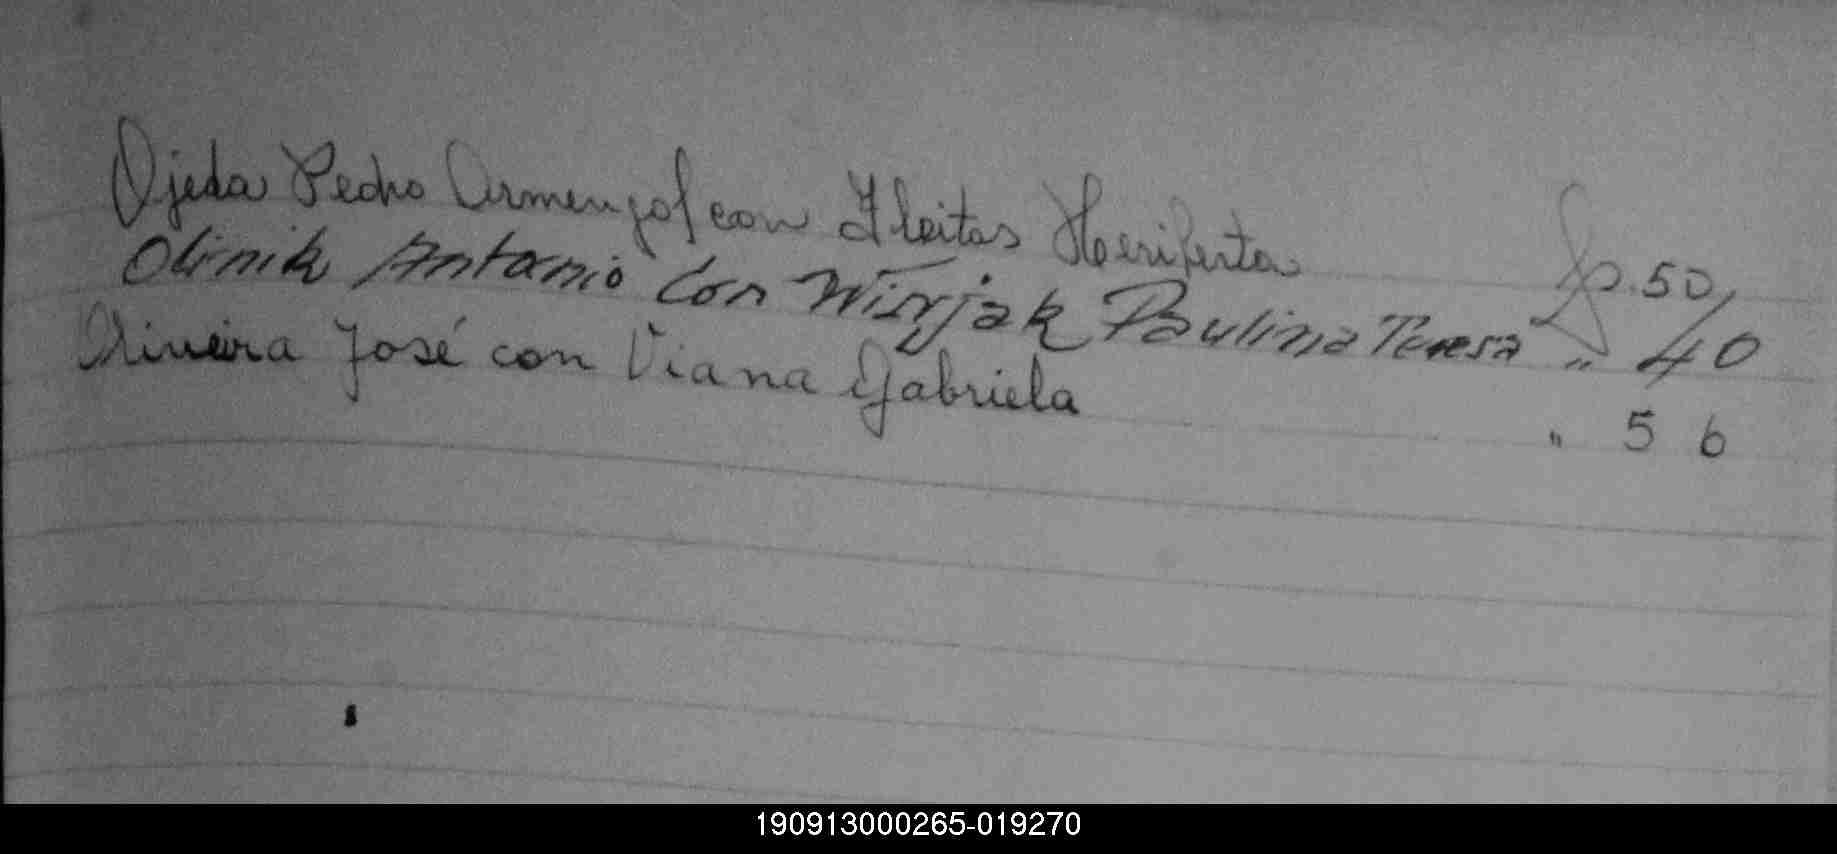 Ojeda Pedro Armengol con Fleitas Heriberta p. 50
Olinik Antonio con Wisnjak Paulina Teresa " 40
Oliveira José con Viana Gabriela " 56
190913000265-019270